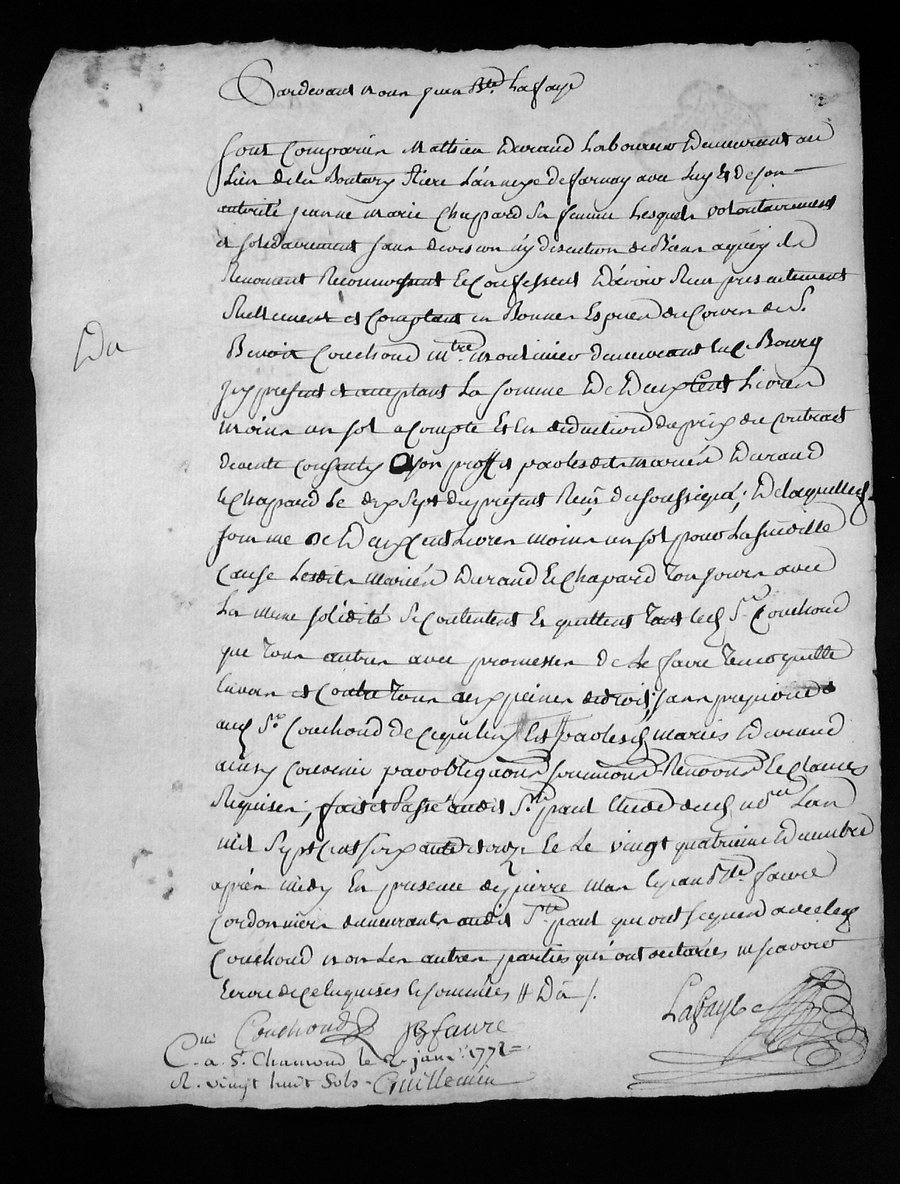 Pardevant nous Jean Bte. Lafaye
sont Comparus Mathieu Durand Laboureur Demeurant au
Lieu de la Boutary Riere L'annexe de farnay avec Luy Et de son
autorité jeanne marie Chapard sa femme Lesquels volontairement
et solidairement sans division ny discution de Biens a quoy ils
Renoncent Reconnoissent et Confessent D'avoir Reçu presentement
Reellement et Comptant en Bonnes Especes du Cours de Sr.
Benoit Couchoud mtre. moulinier demeurant Bourg
Da
icy present et acceptant La somme De Deux Cent Livres
moins un sol a Compte Et En deduction du prix du Contract
de vente Consenty a son proffit par lesdits mariés Durand
et Chapard Le dix Sept du present Reçu du soussigné; De laquelle
somme De Deux Cent Livres moins un sol pour La susditte
Cause Lesdits mariés Durand Et Chapard Toujours avec
La meme solidité Se Contentent Et quittent Tant led Sr. Couchoud
que Tous autres avec promesses De Le faire Tenir quitte
Envers et Contre Tous aux peines de droit; sans prejudice
aud Sr. Couchoud De par lesd mariés Durand
ainsy Convenu par obligaons soumions Renons Et Clauses
Requises; fait et Passé audit St. paul Etude dud nore. L'an
mil Sept Cent soixante et onze Et Le vingt quatrieme Decembre
après midy En presence de pierre et Jean Bte. faure
Cordonniers demeurants audit St. paul qui ont signé avec led
Couchoud non Les autres parties qui ont declarés ne scavoir
Ecrire de Ce Enquises et sommées // Da /.
Couchoud JB faure Lafaye
Cné a St. Chamond le 2 janv. 1772
R. vingt huit Sols Guillemin